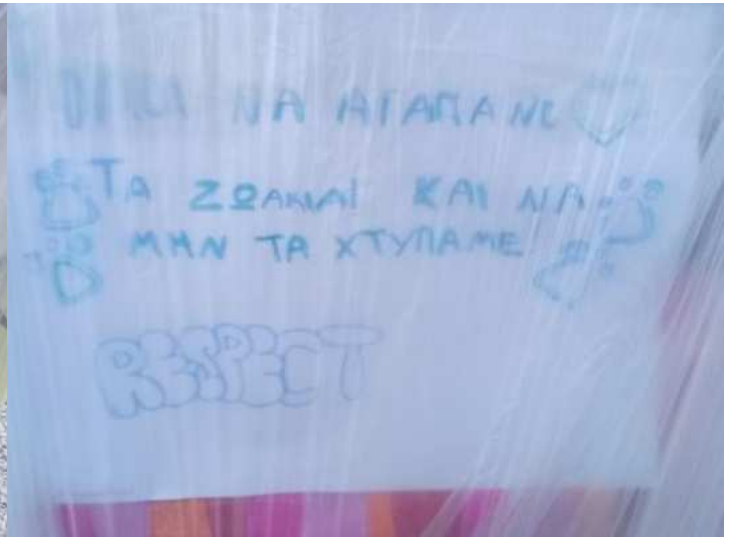 ΝΑ ΑΓΑΠΑΜΕ
ΤΑ ΖΩΑΚΙΑ! ΚΑΙ ΝΑ
ΜΗΝ ΤΑ ΧΤΥΠΑΜΕ
RESPECT